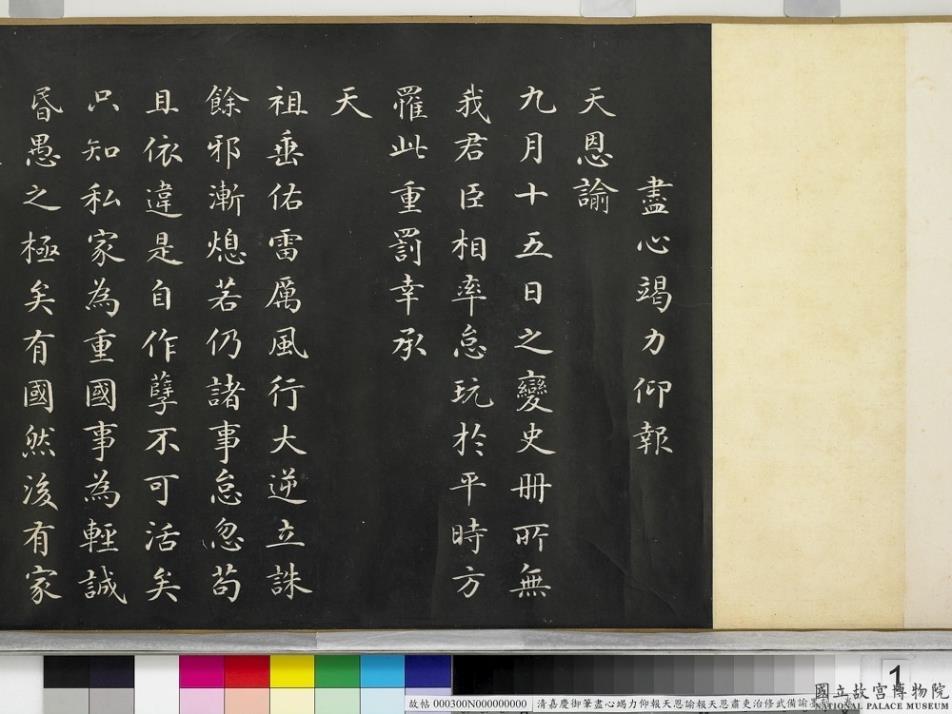 盡心竭力仰報
天恩諭
九月十五日之變史冊所無
我君臣相率怠玩於平時方
罹此重罰幸承
天
祖垂佑雷厲風行大逆立誅
餘邪漸熄若仍諸事怠忽苟
且依違是自作孽不可活矣
只知私家為重國事為輕誠
昏愚之極矣有國然後有家
1
國立故宮博物院
NATIONAL PALACE MUSEUM
故帖 000300N000000000 清嘉慶御筆盡心竭力仰報天恩諭報天恩肅吏治修武備諭